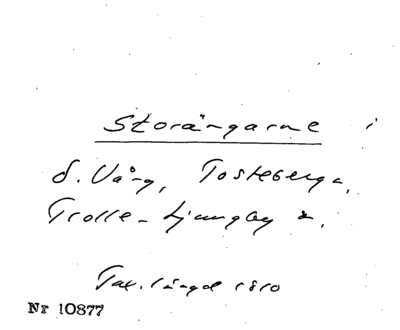 Storängarne i
S. Vång, Tosteberga,
Trolle-Ljungby m.
Tax. längd 1810
Nr 10877